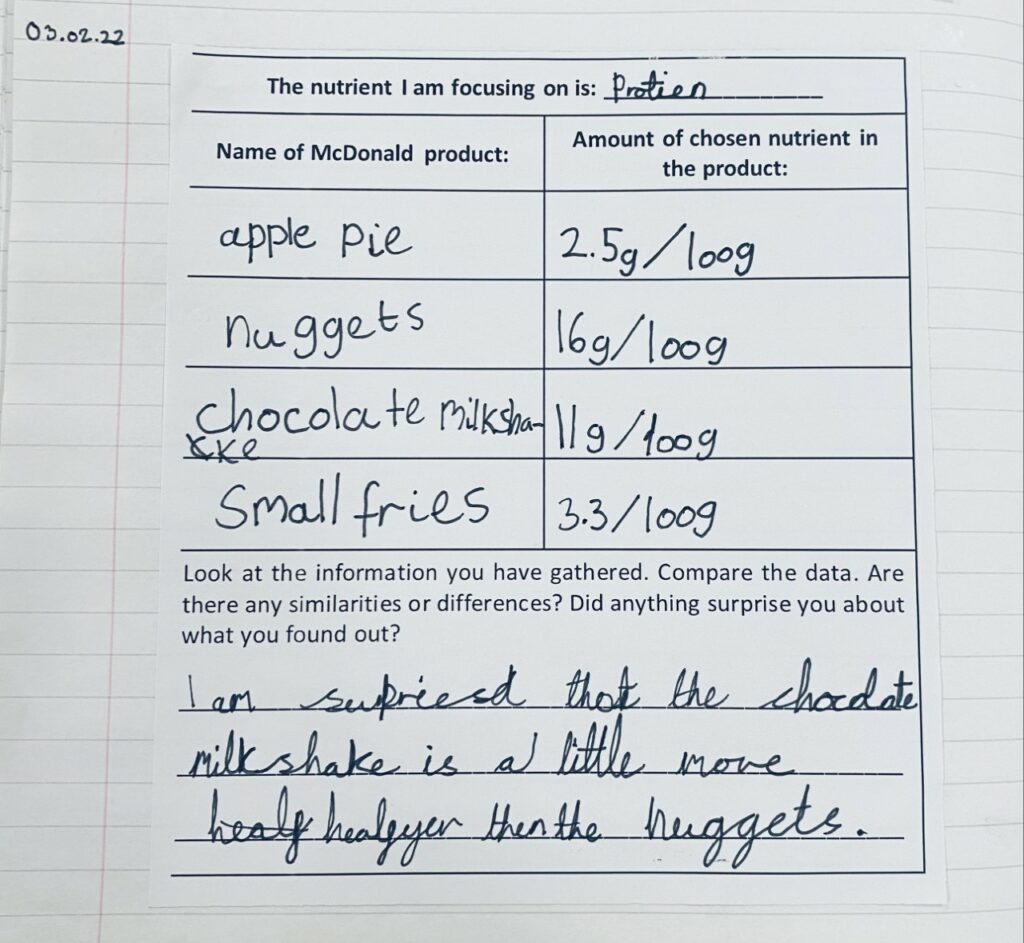 03.02.22
The nutrient I am focusing on is: Protien
Name of McDonald product:
Amount of chosen nutrient in
the product:
apple pie
2.5g/100g
nuggets
16g/100g
chocolate milksha-
kke
11g/100g
Small fries
3.3/100g
Look at the information you have gathered. Compare the data. Are
there any similarities or differences? Did anything surprise you about
what you found out?
I am supriesd that the chocolate
milkshake is a little more
healgyer then the nuggets.